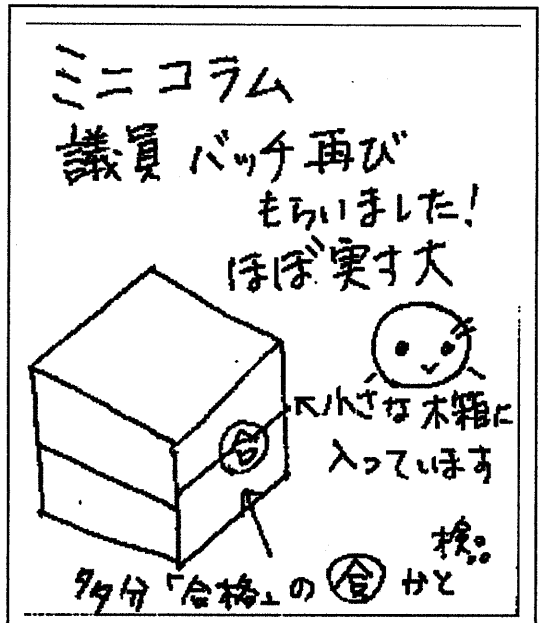 ミニコラム
議員バッチ再び
もらいました!
ほぼ実寸大
小さな木箱に
入っています
合
検
多分「合格」の㊂かと